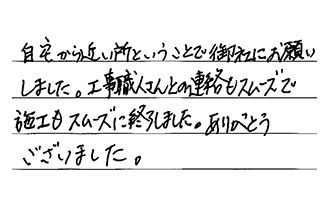 自宅から近い所ということで御社にお願い
しました。工事職人さんとの連絡もスムーズで
施工もスムーズに終了しました。ありがとう
ございました。